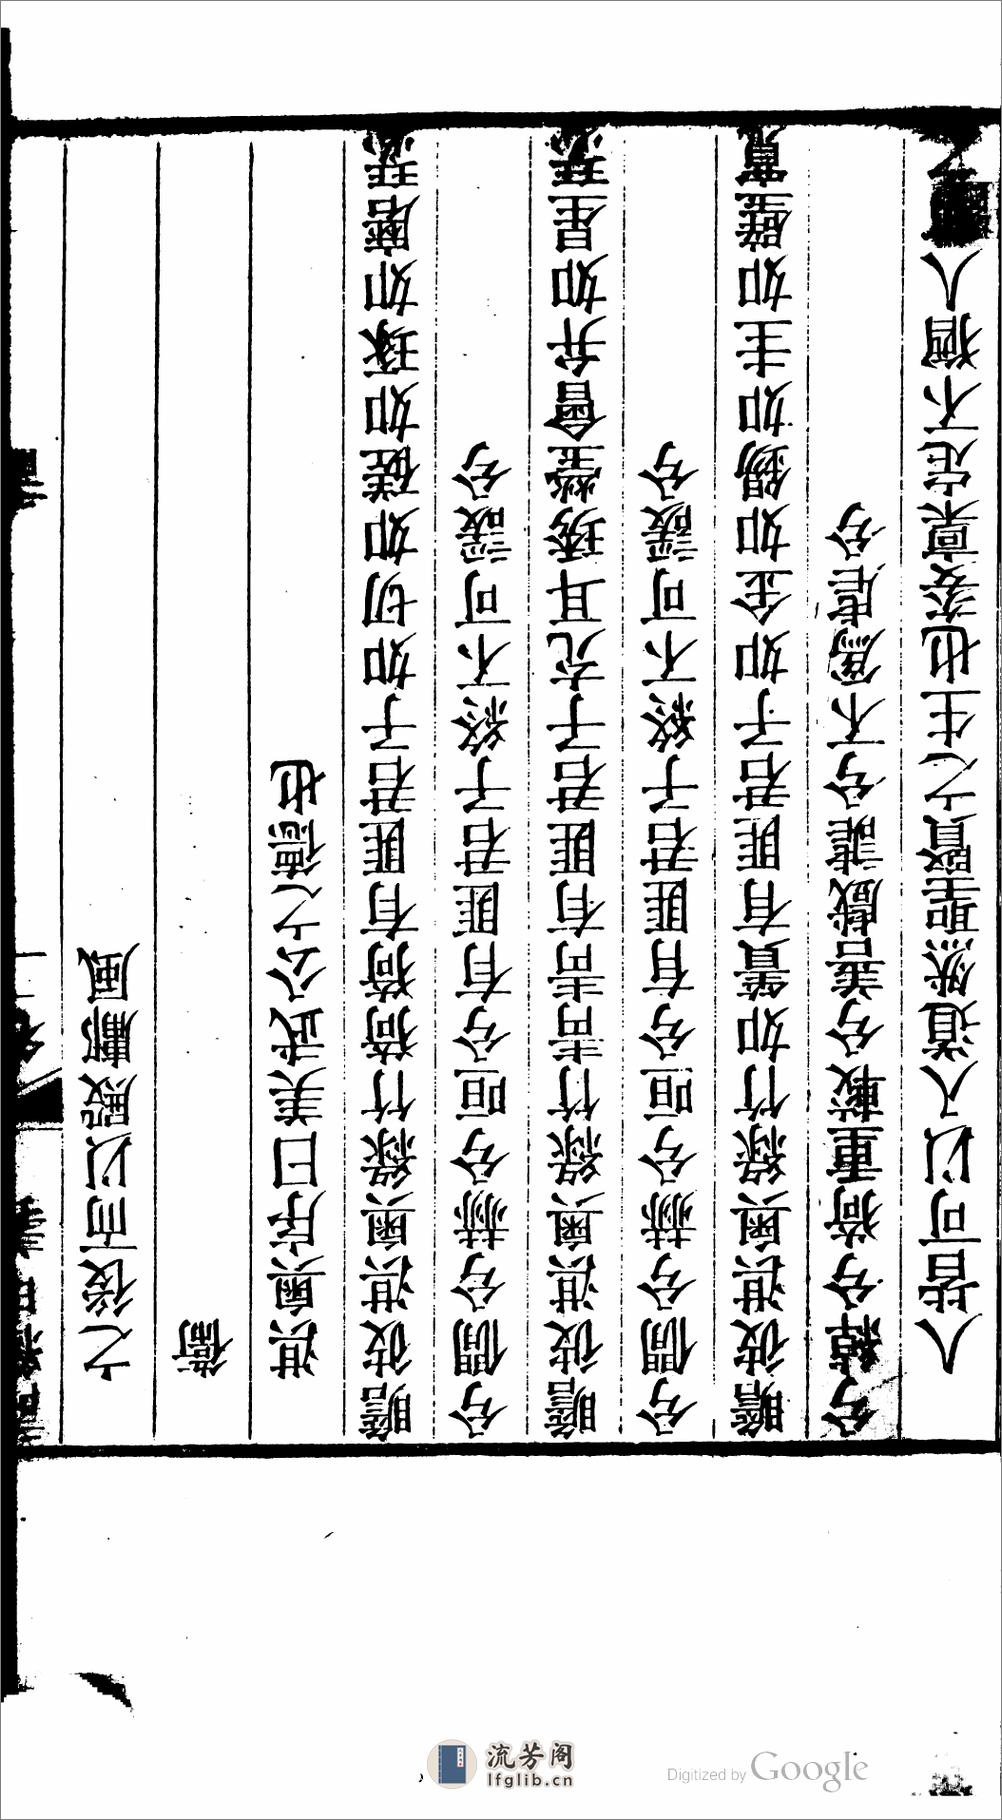 之後而以殿鄘風
衛
淇奧序曰美武公之德也
瞻彼淇奧綠竹猗猗有匪君子如切如磋如琢如磨瑟
兮僩兮赫兮咺兮有匪君子終不可諼兮
瞻彼淇奧綠竹青青有匪君子充耳琇瑩會弁如星瑟
兮僩兮赫兮咺兮有匪君子終不可諼兮
瞻彼淇奧綠竹如簀有匪君子如金如錫如圭如璧寬
兮綽兮猗重較兮善戲謔兮不爲虐兮
人皆可以入道然聖賢之生也姿稟定不猶人
流芳阁
lfglib.cn
Digitized by Google